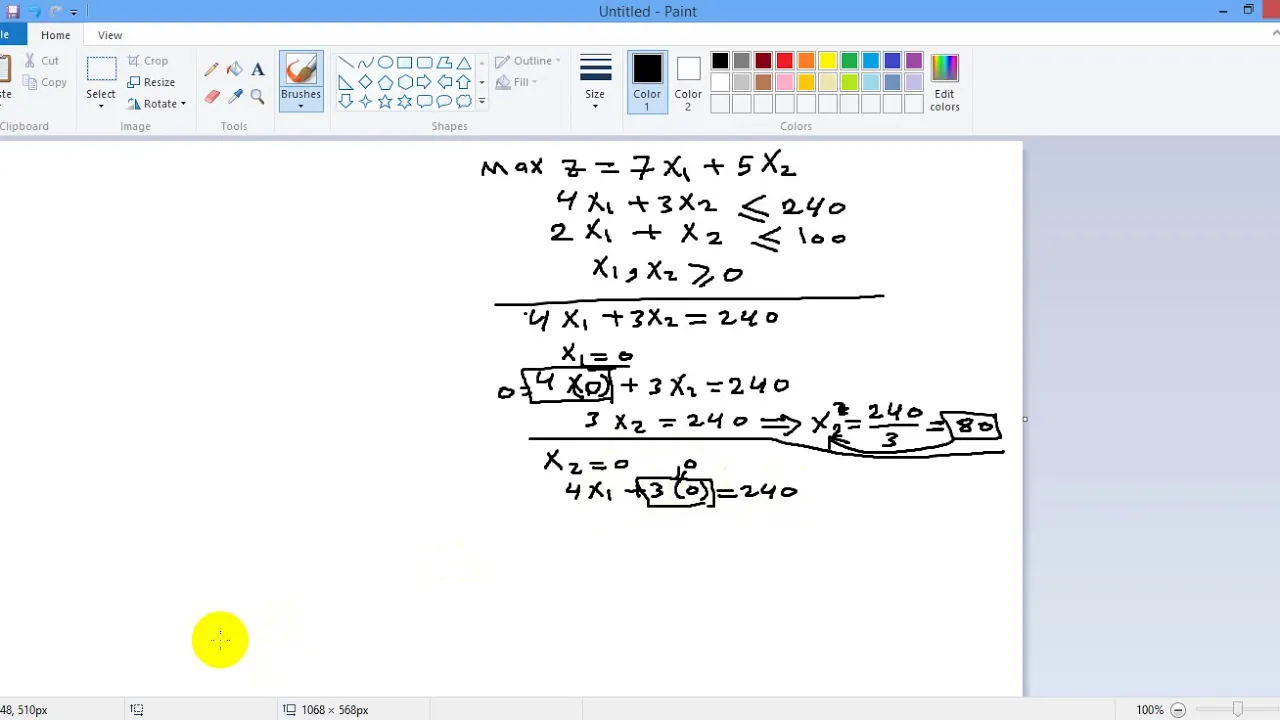 Untitled - Paint
le Home View
Cut
Copy
ste
Clipboard
Select
Crop
Resize
Rotate
Image
Tools
Brushes
Outline
Fill
Shapes
Size
Color 1
Color 2
Edit colors
Colors
Max Z = 7X₁ + 5X₂
4X₁ + 3X₂ ≤ 240
2X₁ + X₂ ≤ 100
X₁, X₂ ≥ 0
4X₁ + 3X₂ = 240
X₁ = 0
0 = 4X(0) + 3X₂ = 240
3X₂ = 240 ⟹ X₂ = 240/3 = 80
X₂ = 0 0
4X₁ + 3(0) = 240
48, 510px
1068 × 568px
100%